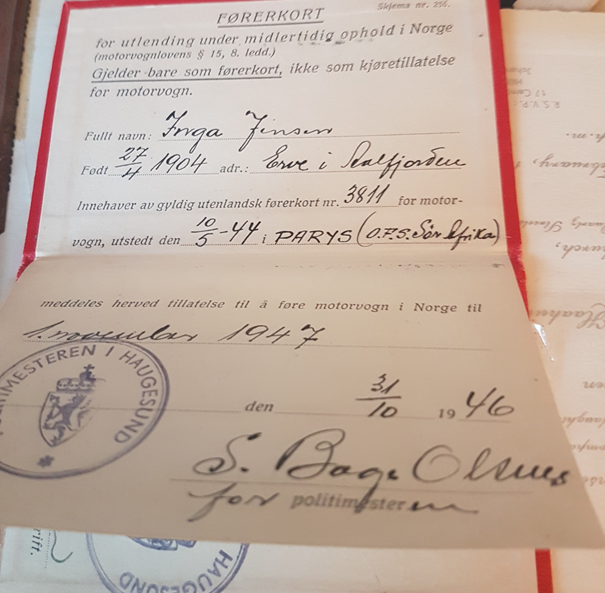 Skjema nr. 256.
FØRERKORT
for utlending under midlertidig ophold i Norge
(motorvognlovens § 15, 8. ledd.)
Gjelder bare som førerkort, ikke som kjøretillatelse
for motorvogn.
Fullt navn: Inga Jensen
Født 27/4 1904 adr.: Erve i Aalfjorden
Innehaver av gyldig utenlandsk førerkort nr. 3811 for motor-
vogn, utstedt den 10/5-44 i PARYS (O.F.S. Sør Afrika)
meddeles herved tillatelse til å føre motorvogn i Norge til
1. november 1947
POLITIMESTEREN I HAUGESUND
den 31/10 1946
S. Bage Olsnes
for politimesteren
HAUGESUND
R.S.V.P.: